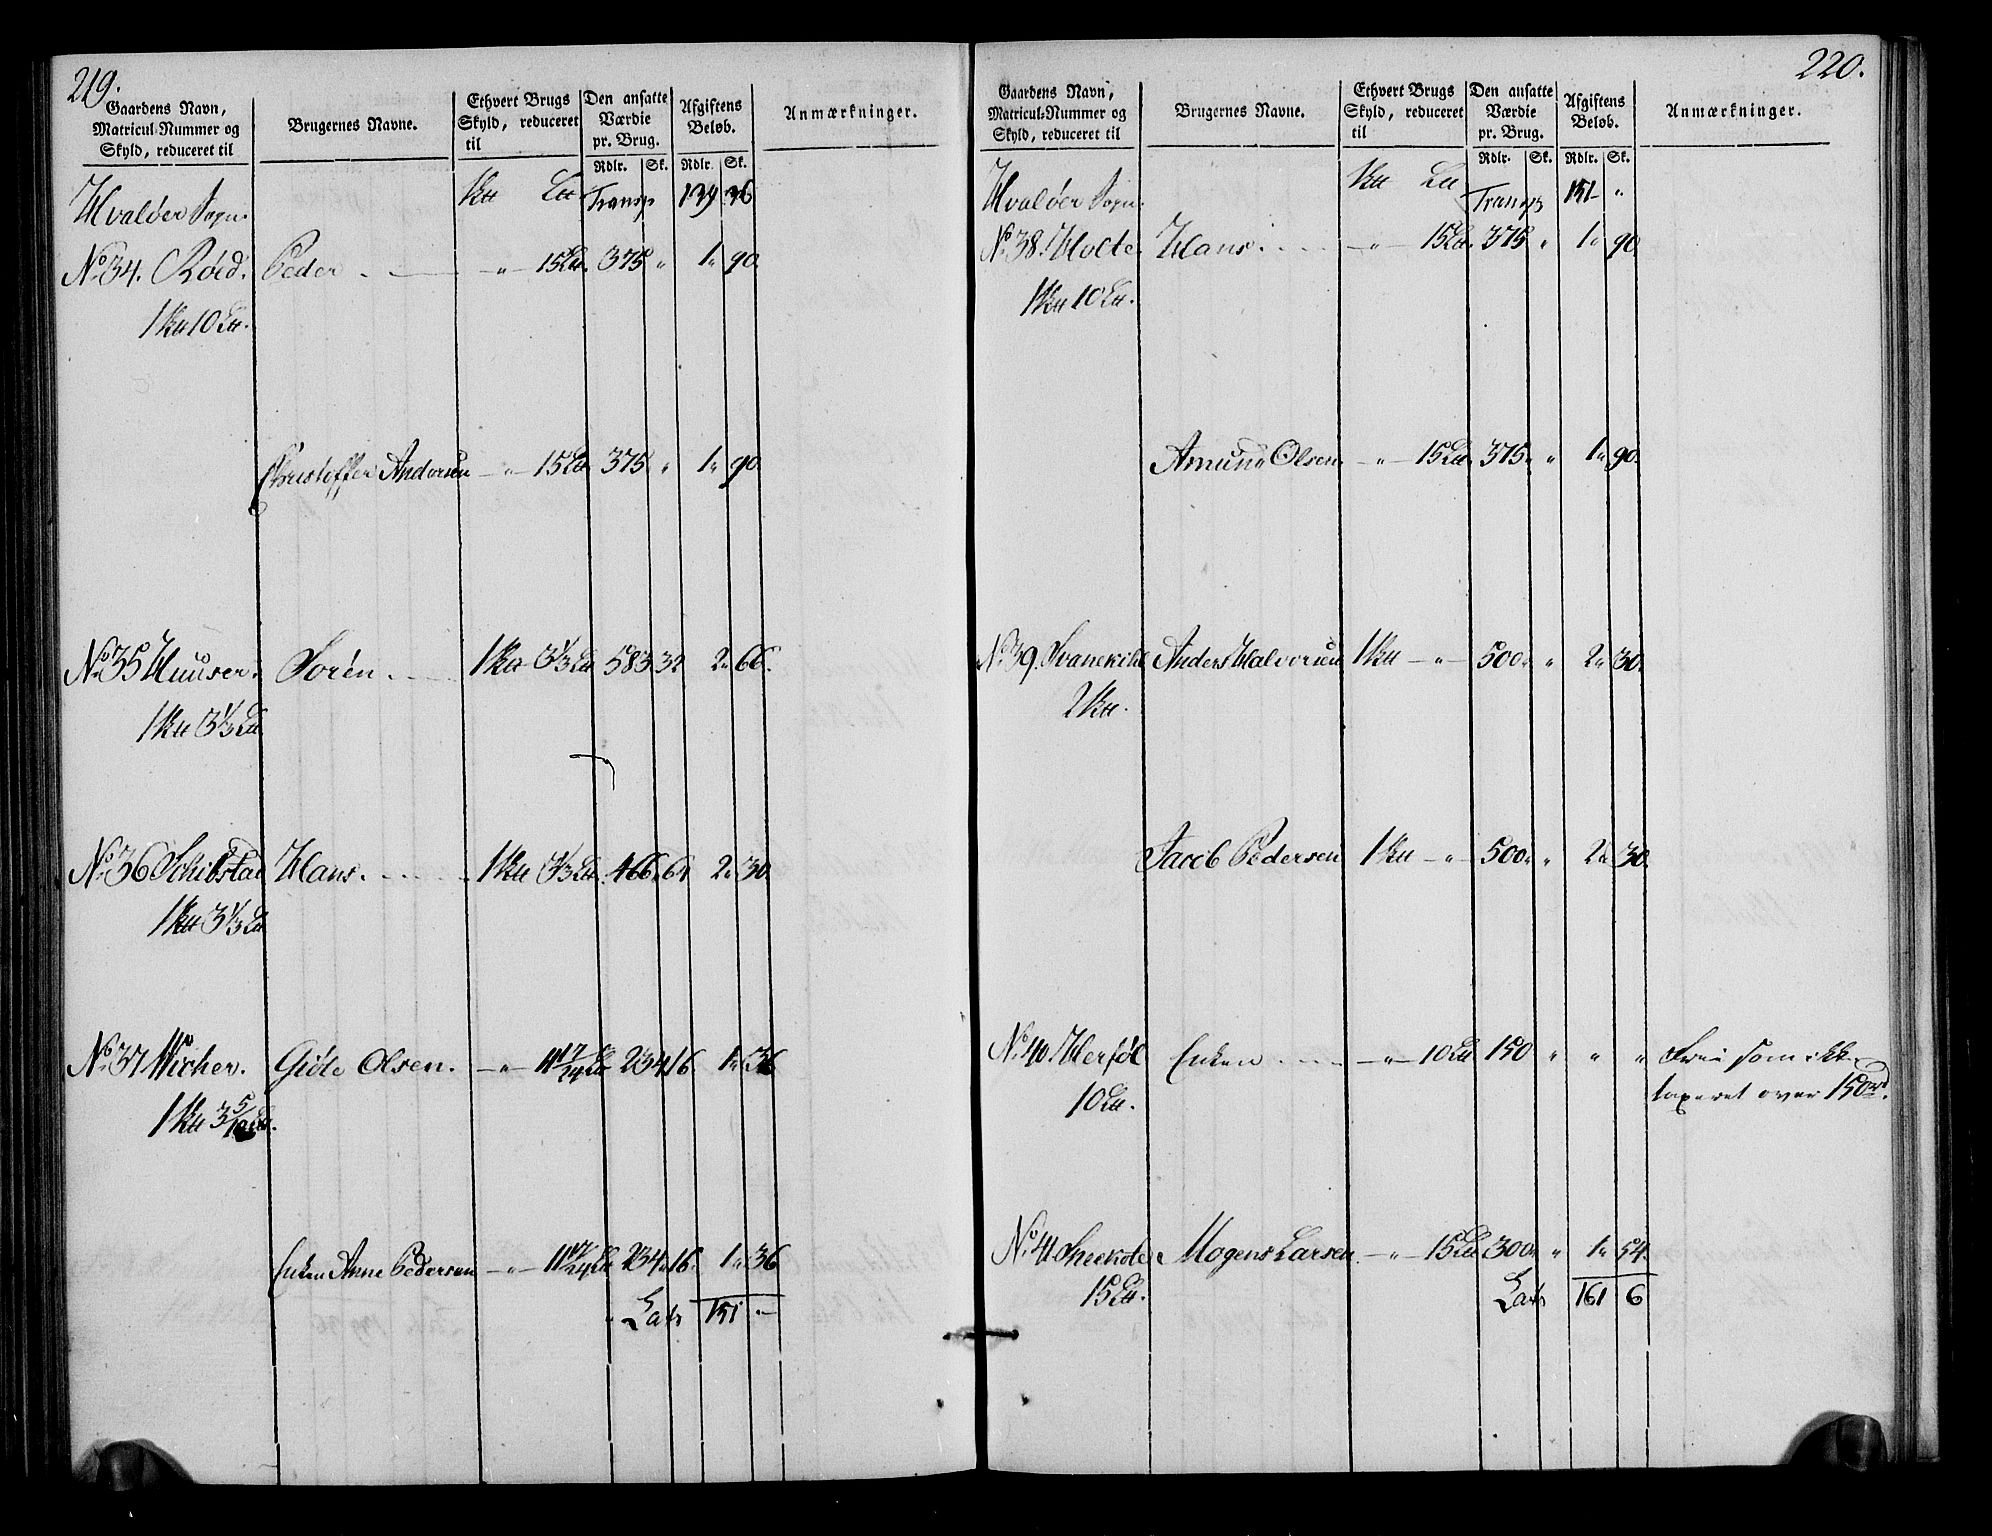 219.
Gaardens Navn, Matricul-Nummer og Skyld, reduceret til
Brugernes Navne.
Ethvert Brugs Skyld, reduceret til
Den ansatte Værdie pr. Brug.
Afgiftens Beløb.
Anmærkninger.
Rdlr. Sk. Rdlr. Sk.
Hvaløer Sogn. Transp 139 36
No 34. Røed. Peder 〃 15 L℔. 375 〃 1〃 90.
1 S℔ 10 L℔.
Christoffer Andersen 〃 15 L℔. 375 〃 1〃 90.
No 35 Huuser. Sørén. 1 S℔ 3⅓ L℔ 583 32 2〃 66.
1 S℔ 3⅓ L℔
No 36 Schibstad Hans. 1 S℔ 3⅓ L℔. 466 64 2〃 30.
1 S℔ 3⅓ L℔
No 37 Wicher. Giøde Olsen. 〃 11 17/24 L℔ 234 16 1〃 36
1 S℔ 3 5/12 L℔.
Enken Anne Pedersen 〃 11 17/24 L℔ 234 16. 1〃 36
Lats 151 〃
220.
Gaardens Navn, Matricul-Nummer og Skyld, reduceret til
Brugernes Navne.
Ethvert Brugs Skyld, reduceret til
Den ansatte Værdie pr. Brug.
Afgiftens Beløb.
Anmærkninger.
Rdlr. Sk. Rdlr. Sk.
Hvaløer Sogn. Transp 151 〃
No 38. Holte. Hans. 〃 15 L℔. 375 〃 1〃 90.
1 S℔ 10 L℔.
Amund Olsen. 〃 15 L℔. 375 〃 1〃 90.
No 39. Svanekihl Anders Halvorsen 1 S℔ 〃 500 〃 2〃 30.
2 S℔.
Jacob Pedersen 1 S℔ 〃 500 〃 2〃 30.
No 40. Herføl Enken 〃 10 L℔ 150 〃 〃 〃 Frii som ikke
10 L℔. taxeret over 150 rd.
No 41 Mogens Larsen. 〃 15 L℔ 300 〃 1〃 54.
15 L℔. Lats 161 6